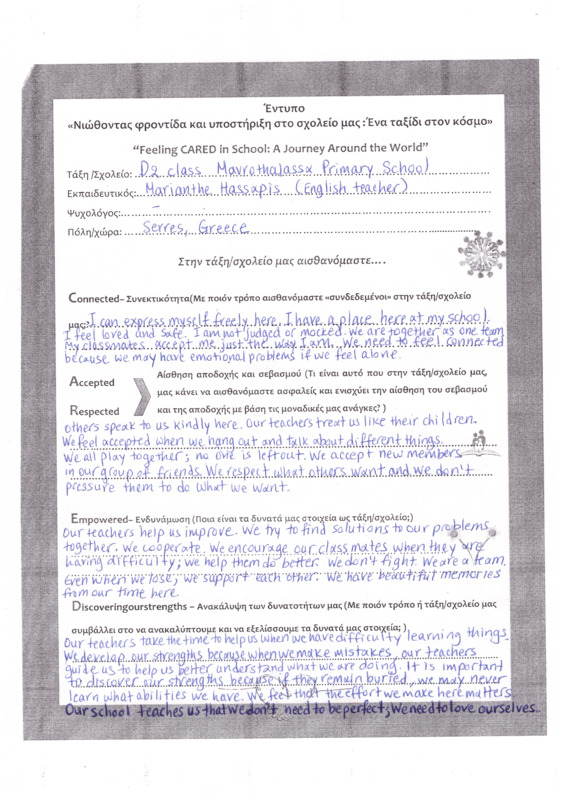 Έντυπο
«Νιώθοντας φροντίδα και υποστήριξη στο σχολείο μας :Ένα ταξίδι στον κόσμο»
“Feeling CARED in School: A Journey Around the World”
Τάξη /Σχολείο: D2 class Mavrothalassa Primary School
Εκπαιδευτικός: Marianthe Hassapis (English teacher)
Ψυχολόγος: –
Πόλη/χώρα: Serres, Greece
Στην τάξη/σχολείο μας αισθανόμαστε....
Connected– Συνεκτικότητα(Με ποιόν τρόπο αισθανόμαστε «συνδεδεμένοι» στην τάξη/σχολείο
μας; I can express myself freely here. I have a place here at my school.
I feel loved and safe. I am not judged or mocked. We are together as one team.
My classmates accept me just the way I am. We need to feel connected
because we may have emotional problems if we feel alone.
Accepted
Respected
Αίσθηση αποδοχής και σεβασμού (Τι είναι αυτό που στην τάξη/σχολείο μας,
μας κάνει να αισθανόμαστε ασφαλείς και ενισχύει την αίσθηση του σεβασμού
και της αποδοχής με βάση τις μοναδικές μας ανάγκες? )
others speak to us kindly here. Our teachers treat us like their children.
We feel accepted when we hang out and talk about different things.
We all play together; no one is left out. We accept new members
in our group of friends. We respect what others want and we don't
pressure them to do what we want.
Empowered– Ενδυνάμωση (Ποια είναι τα δυνατά μας στοιχεία ως τάξη/σχολείο;)
Our teachers help us improve. We try to find solutions to our problems
together. We cooperate. We encourage our classmates when they are
having difficulty; we help them do better. We don't fight. We are a team.
Even when we lose, we support each other. We have beautiful memories
from our time here.
Discoveringourstrengths – Ανακάλυψη των δυνατοτήτων μας (Με ποιόν τρόπο ή τάξη/σχολείο μας
συμβάλλει στο να ανακαλύπτουμε και να εξελίσσουμε τα δυνατά μας στοιχεία; )
Our teachers take the time to help us when we have difficulty learning things.
We develop our strengths because when we make mistakes, our teachers
guide us to help us better understand what we are doing. It is important
to discover our strengths because if they remain buried, we may never
learn what abilities we have. We feel that the effort we make here matters.
Our school teaches us that we don't need to be perfect; We need to love ourselves.